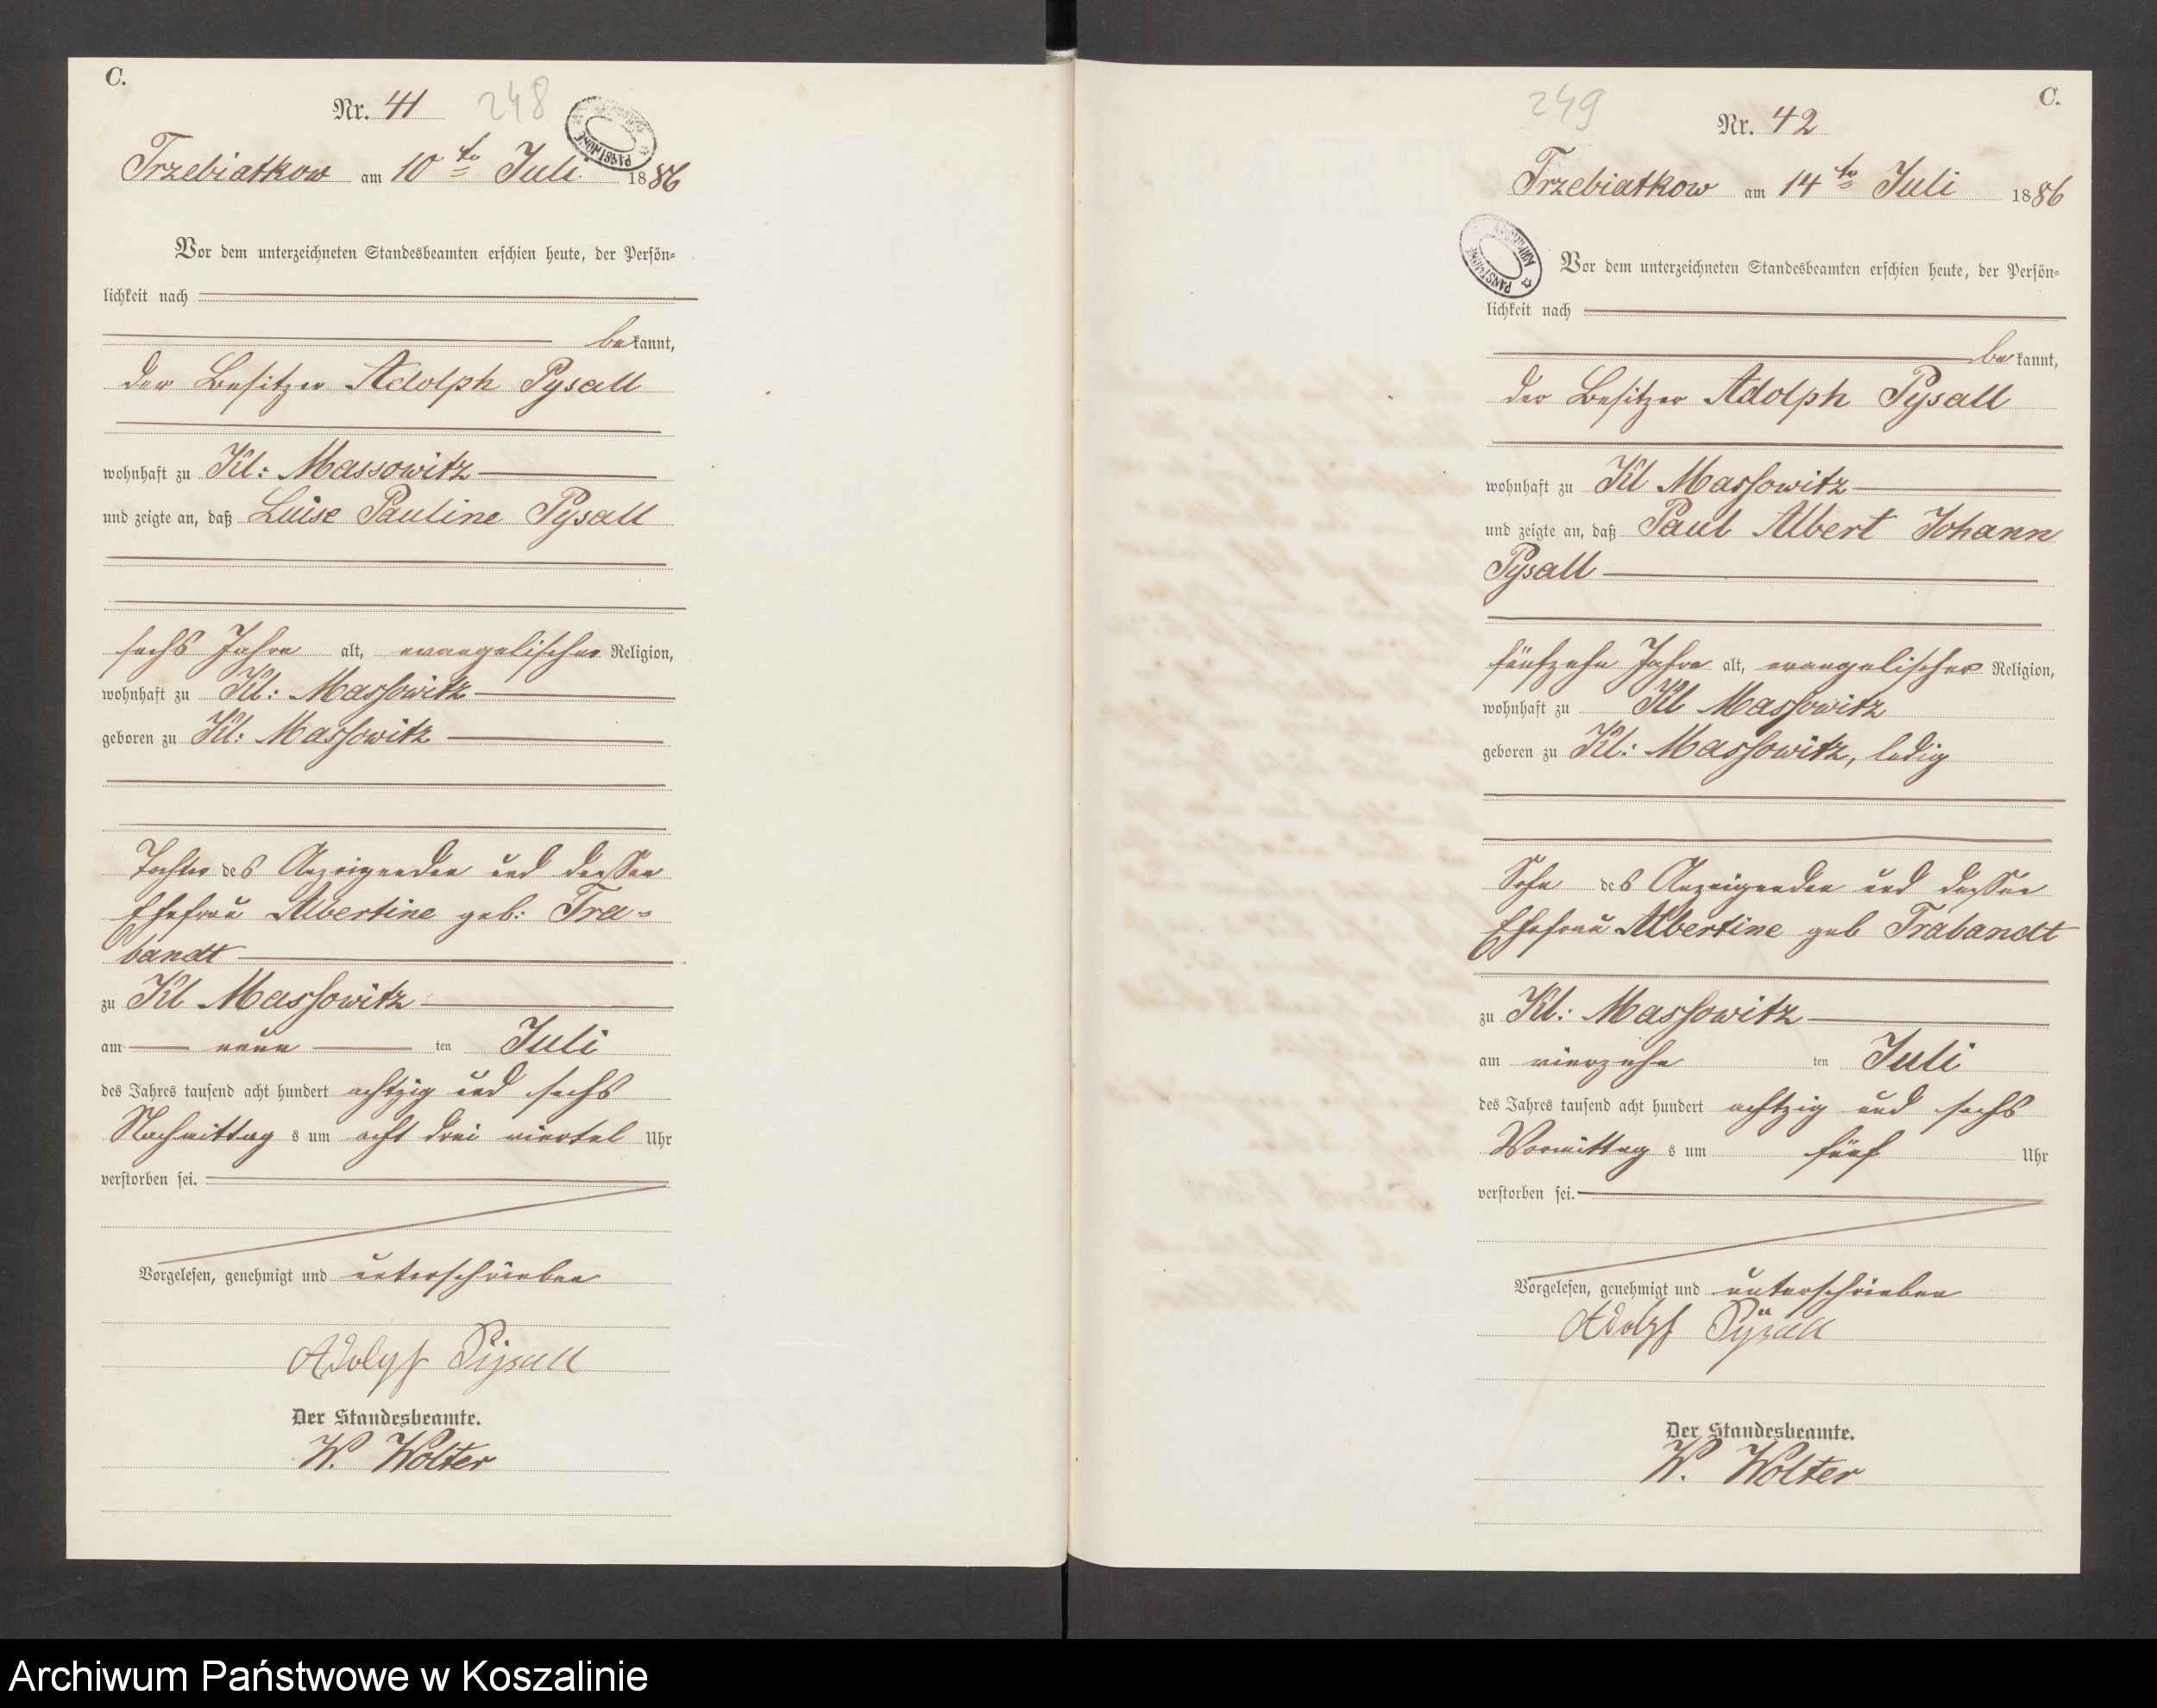 C.
Nr. 41
248
Trzebiatkow am 10 ten Juli 1886
Vor dem unterzeichneten Standesbeamten erschien heute, der Persön=
lichkeit nach
bekannt,
der Besitzer Adolph Pysall
wohnhaft zu Kl: Massowitz
und zeigte an, daß Luise Pauline Pysall
sechs Jahre alt, evangelischer Religion,
wohnhaft zu Kl: Massowitz
geboren zu Kl: Massowitz
Tochter des Anzeigenden und dessen
Ehefrau Albertine geb: Tra=
bandt
zu Kl Massowitz
am neun ten Juli
des Jahres tausend acht hundert achtzig und sechs
Nachmittags um acht drei viertel Uhr
verstorben sei.
Vorgelesen, genehmigt und unterschrieben
Adolph Pysall
Der Standesbeamte.
W. Wolter
C.
249
Nr. 42
Trzebiatkow am 14 ten Juli 1886
Vor dem unterzeichneten Standesbeamten erschien heute, der Persön=
lichkeit nach
bekannt,
der Besitzer Adolph Pysall
wohnhaft zu Kl Massowitz
und zeigte an, daß Paul Albert Johann
Pysall
fünfzehn Jahre alt, evangelischer Religion,
wohnhaft zu Kl Massowitz
geboren zu Kl: Massowitz, ledig
Sohn des Anzeigenden und dessen
Ehefrau Albertine geb Trabandt
zu Kl: Massowitz
am vierzehn ten Juli
des Jahres tausend acht hundert achtzig und sechs
Vormittags um fünf Uhr
verstorben sei.
Vorgelesen, genehmigt und unterschrieben
Adolph Pÿsall
Der Standesbeamte.
W. Wolter
Archiwum Państwowe w Koszalinie